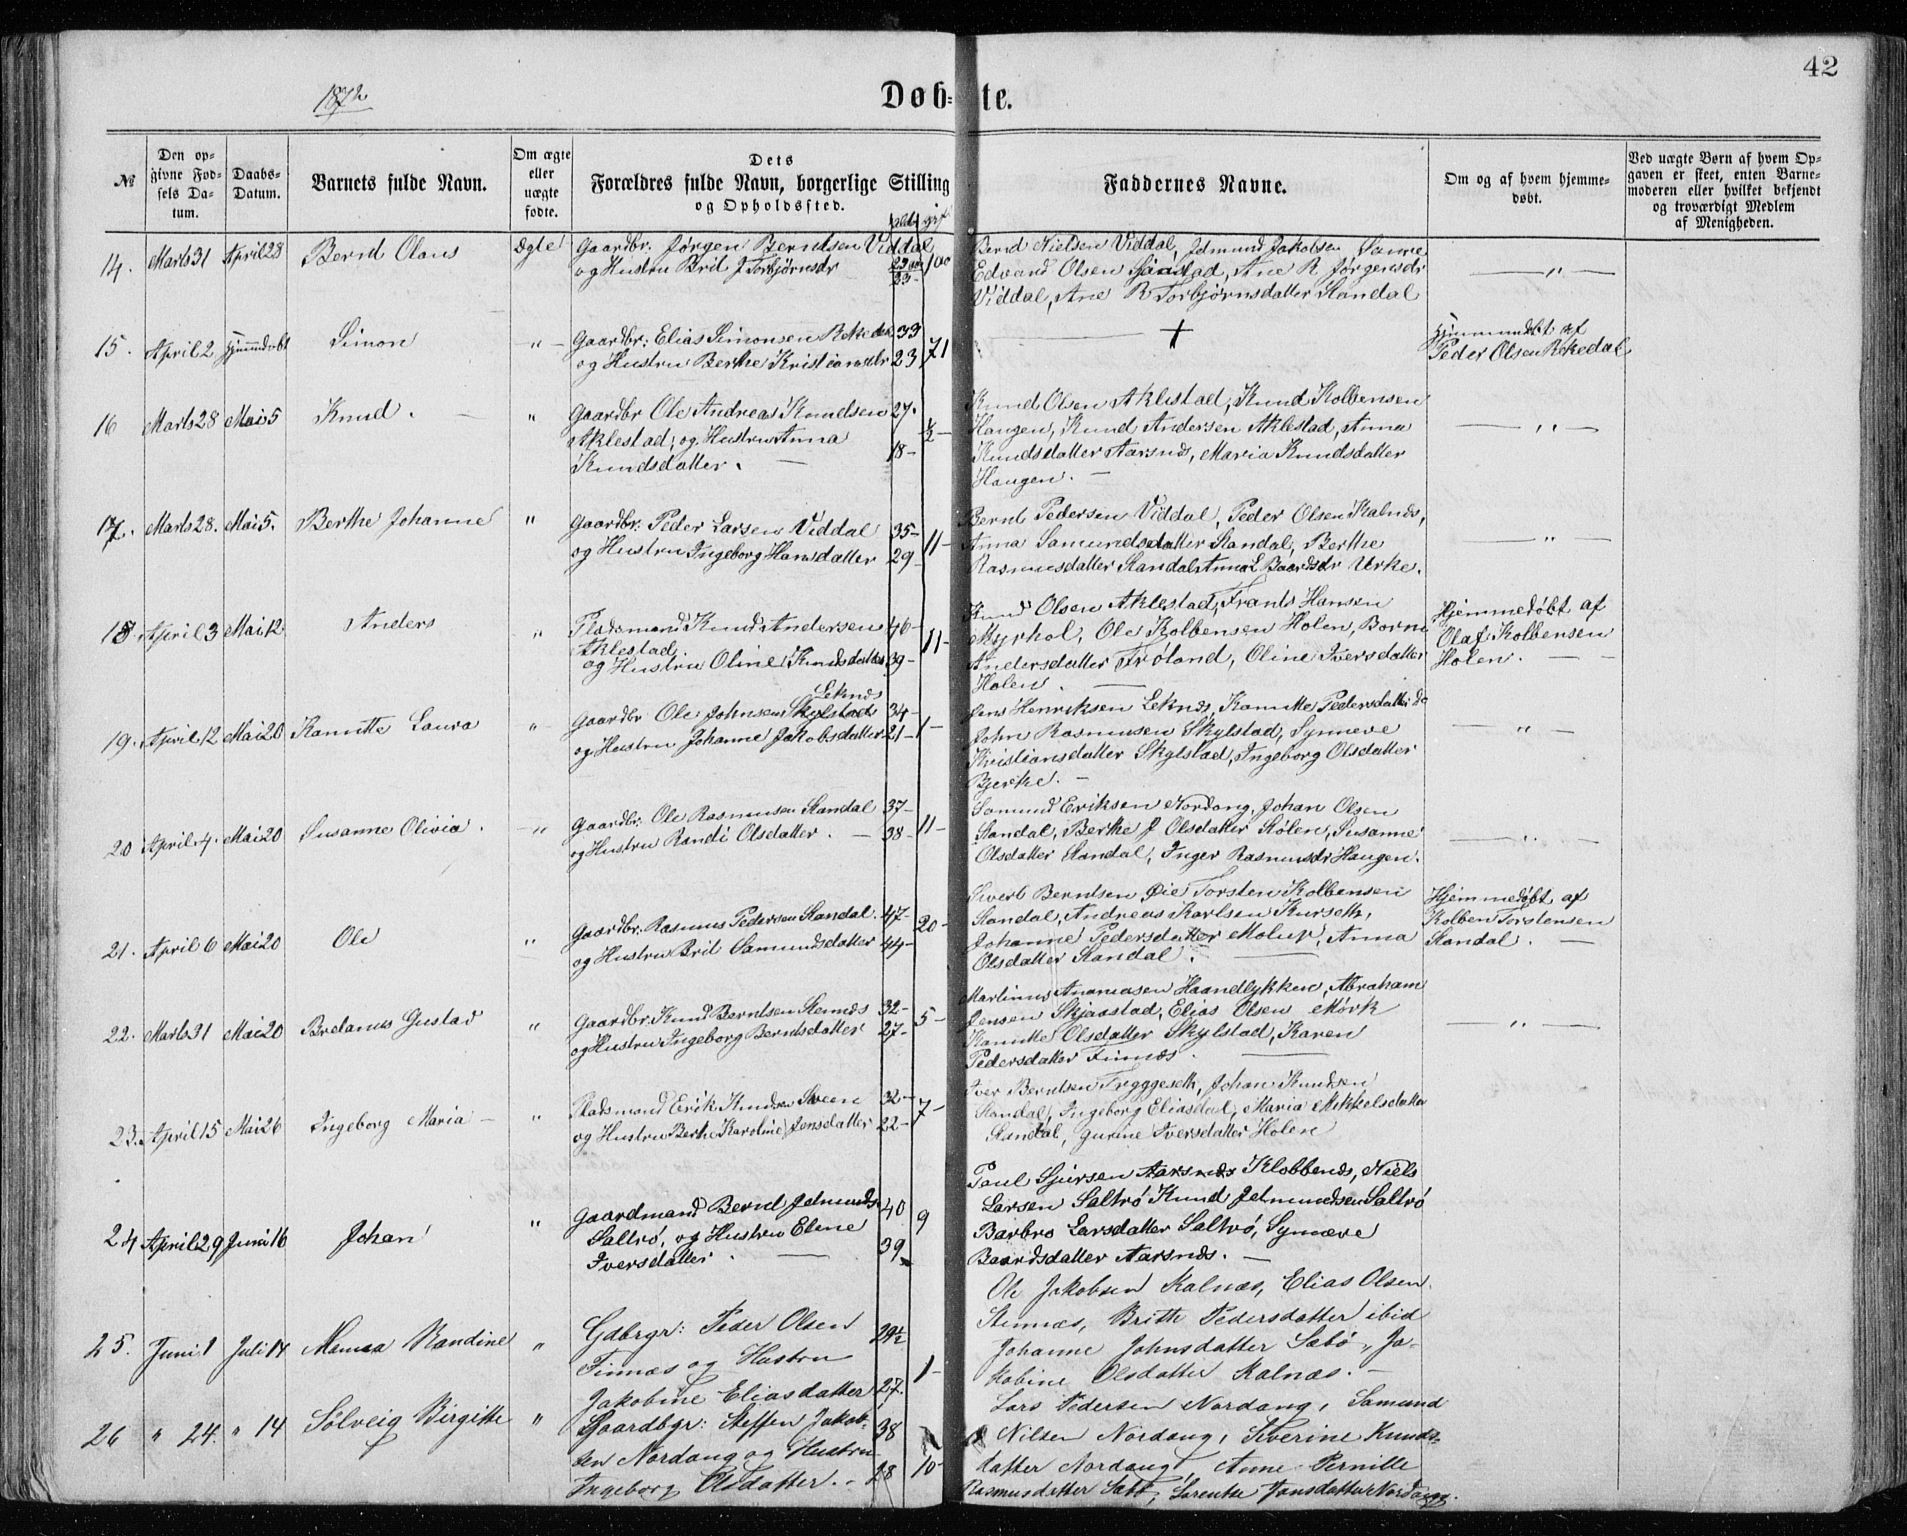 42
1872
Døbte.
№
Den opgivne Fødsels Datum.
Daabs-Datum.
Barnets fulde Navn.
Om ægte eller uægte fødte.
Dets Forældres fulde Navn, borgerlige Stilling og Opholdssted.
Faddernes Navne.
Om og af hvem hjemmedøbt.
Ved uægte Børn af hvem Opgaven er skeet, enten Barnemoderen eller hvilket bekjendt og troværdigt Medlem af Menigheden.
14. Marts 31 April 28 Bernd Olaus Ægte
Gaardbr. Jørgen Berntsen Viddal
og Hustru Brit J Torbjørnsdr
Bernd Nielsen Viddal, Jdmund Jakobsen
Edvard Olsen Ane R Jørgensdr
Viddal, Ane R Torbjørnsdatter Standal
15. April 2 Hjemmedøbt Simon "
Gaardbr: Elias Simonsen Rekedal 33
og Hustru Berthe Kristiansdr 23 71
+
Hjemmedøbt af
Peder Olsen Rekedal
16 Marts 28 Mai 5 Knud. "
Gaardbr Ole Andreas Knudsen 27.
Aklestad, og Hustru Anna ½
Knudsdatter. 18-
Knud Olsen Aklestad, Knud Kolbensen
Haugen, Knud Andersen Aklestad, Anna
Knudsdatter Aarsnæs, Maria Knudsdatter
Haugen.
17. Marts 28. Mai 5. Berthe Johanne "
Gaardbr: Peder Larsen Viddal 35-
og Hustru Ingeborg Hansdatter 29 11-
Bernt Pedersen Viddal, Peder Olsen Kalnæs,
Anna Samundsdatter Standal, Berthe
Rasmusdatter Standal Anna L Baardsdr Urke.
18 April 3 Mai 12 Anders "
Pladsmand Knud Andersen 40-
Aklestad. 11-
og Hustru Oline Knudsdatter 39-
Knud Olsen Aklestad, Frants Hansen
Myrhol, Ole Kolbensen Holen, Borni
Andersdatter Frøland, Oline Iversdatter
Holen.
Hjemmedøbt af
Olaf Kolbensen
Holen.
19. April 12 Mai 20 Kanutte Laura "
Leknæs
Gaardbr Ole Johnsen Skylstad 34-
og Hustru Johanne Jakobsdatter 21- 1-
Jens Henriksen Leknæs, Kanutte Pedersdatter do
John Rasmusen Skylstad, Synneve
Kristiansdatter Skylstad, Ingeborg Olsdatter
Bjerke.
20 April 4. Mai 20 Susanne Olivia. "
Gaardbr: Ole Rasmusen Standal 37-
og Hustru Randi Olsdatter. 38- 11-
Samund Eriksen Nordang, Johan Olsen
Standal, Berthe J Olsdatter Stølen, Susanne
Olsdatter Standal, Inger Rasmusdr Haugen.
21. April 6 Mai 20 Ole "
Gaardbr: Rasmus Pedersen Standal. 47-
og Hustru Brit Samundsdatter 44- 20-
Sivert Berntsen Øie Torsten Kolbensen
Standal, Andreas Karlsen Kurseth,
Johanne Pedersdatter Molup, Anna
Olsdatter Standal.
Hjemmedøbt af
Kolben Torstensen
Standal.
22. Marts 31 Mai 20 Bretanus Gustav "
Gaardbr: Knud Berntsen Stennæs 32-
og Hustru Ingeborg Berntsdatter 27- 5-
Martinus Ananiasen Haandlykken, Abraham
Jensen Skjaastad, Elias Olsen Mørk
Kanutte Olsdatter Skylstad, Karen
Pedersdatter Finnæs.
23. April 15 Mai 26 Ingeborg Maria "
Pladsmand Erik Knudsen Sveen 32-
og Hustru Berthe Karoline Jensdatter 22- 7-
Iver Berntsen Tryggeseth, Johan Knudsen
Standal, Ingeborg Eliasdat, Maria Mikkelsdatter
Standal, Gurine Iversdatter Holen
24 April 29 Juni 16 Johan "
Gaardmand Bernd Jdmunds. 40
Saltrø, og Hustru Elene 9
Iversdatter. 39
Paul Sjursen Aarsnæs Klobbenæs, Niels
Larsen Saltrø Knud Jdmundsen Saltrø
Barbro Larsdatter Saltrø, Synneve
Baardsdatter Aarsnæs.
25. Juni 1 Juli 14 Randine "
Gdbrgr: Peder Olsen 29½
Finnæs og Hustru 1-
Jakobine Eliasdatter 27.
Ole Jakobsen Kalnæs, Elias Olsen
Stennæs, Brith Pedersdatter ibid
Johanne Johnsdatter Sæbø, Ja-
kobine Olsdatter Kalnæs.
26 " 24. " 14 Sølveig Birgitte "
Gaardbgr: Steffen Jakob- 38
sen Nordang og Hustru 10-
Ingeborg Olsdatter. 28
Lars Pedersen Nordang, Samund
Nilsen Nordang, Severine Knuds-
datter Nordang, Anne Pernille
Rasmusdatter Sætr, Lorentse Jonsdatter Nordang.